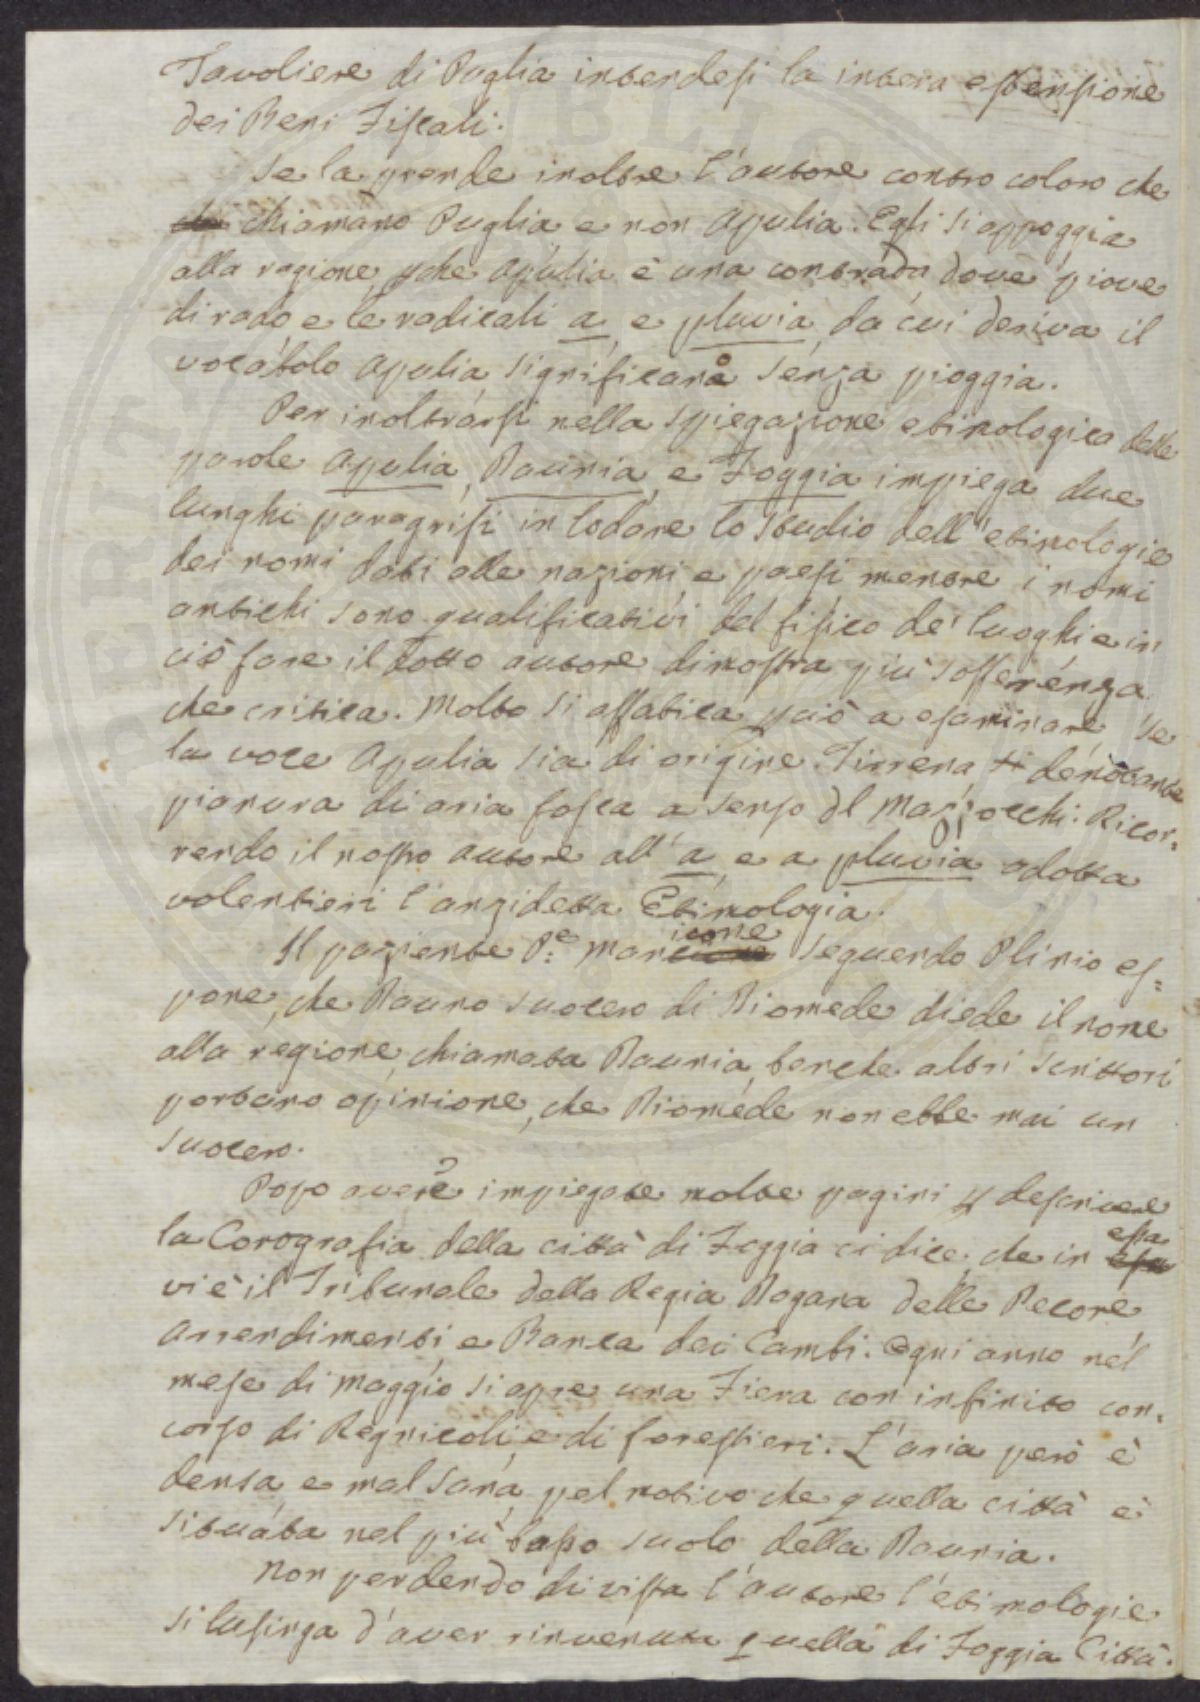 Tavoliere di Puglia intendesi la intera estensione
dei Beni Fiscali.
Se la prende inoltre l'autore contro coloro che
che chiamano Puglia e non Apulia. Egli si appoggia
alla ragione, pche Apulia è una contrada dove piove
di rado e le radicali a, e pluvia, da cui deriva il
vocabolo Apulia significano senza pioggia.
Per inoltrarsi nella spiegazione etimologica delle
parole Apulia, Daunia, e Foggia impiega due
lunghi paragrifi in lodare lo studio dell'etimologie
dei nomi dati alle nazioni, e paesi mentre i nomi
antichi sono qualificativi del fisico de' luoghi e in
ciò fare il dotto autore dimostra più sofferenza
che critica. Molto si affatica pciò a esaminare se
la voce Apulia sia di origine Tirrena, denotante
pianura di aria fosca a senso dl Mazzocchi: Ricor-
rendo il nostro autore all'a, e a pluvia adotta
volentieri l'anzidetta Etimologia.
Il paziente Pe: Marcicone seguendo Plinio es-
pone, che Dauno suocero di Diomede diede il nome
alla regione, chiamata Daunia, benche altri scrittori
portano opinione, che Diomede non ebbe mai un
suocero.
Dopo avere impiegate molte pagini p descrivere
la Corografia della città di Foggia ci dice, che in essa
vi è il Tribunale della Regia Dogana delle Pecore
Arrendimenti e Banca dei Cambi. Ogni anno nel
mese di Maggio si apre una Fiera con infinito con-
corso di Regnicoli, e di forestieri. L'aria però è
densa, e mal sana, pel motivo che quella città è
situata nel più basso suolo della Daunia.
Non perdendo di vista l'autore l'etimologie
si lusinga d'aver rinvenuta quella di Foggia Città.